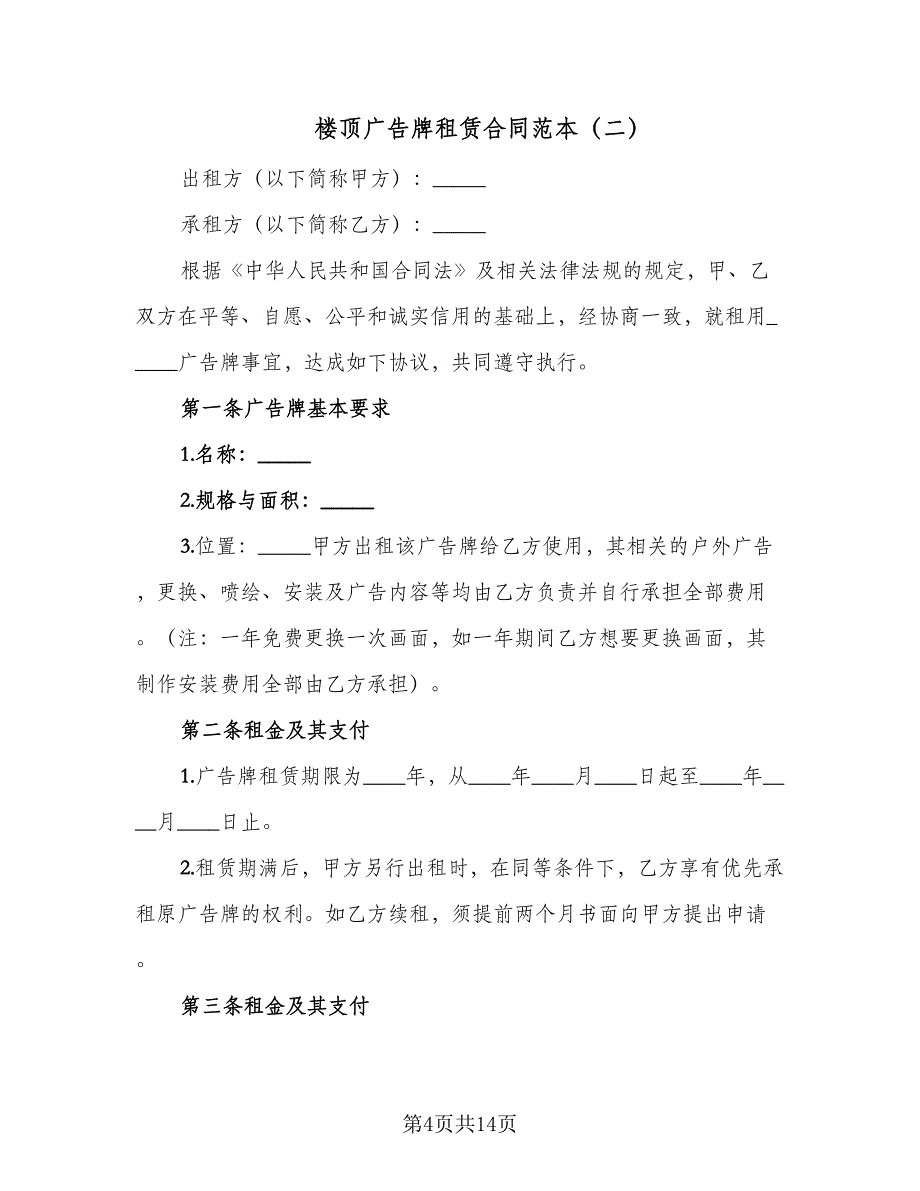 楼顶广告牌租赁合同范本（二）
出租方（以下简称甲方）：_____
承租方（以下简称乙方）：_____
根据《中华人民共和国合同法》及相关法律法规的规定，甲、乙
双方在平等、自愿、公平和诚实信用的基础上，经协商一致，就租用_
____广告牌事宜，达成如下协议，共同遵守执行。
第一条广告牌基本要求
1.名称：_____
2.规格与面积：_____
3.位置：_____甲方出租该广告牌给乙方使用，其相关的户外广告
，更换、喷绘、安装及广告内容等均由乙方负责并自行承担全部费用
。（注：一年免费更换一次画面，如一年期间乙方想要更换画面，其
制作安装费用全部由乙方承担）。
第二条租金及其支付
1.广告牌租赁期限为____年，从____年____月____日起至____年__
__月____日止。
2.租赁期满后，甲方另行出租时，在同等条件下，乙方享有优先承
租原广告牌的权利。如乙方续租，须提前两个月书面向甲方提出申请
。
第三条租金及其支付
第4页共14页